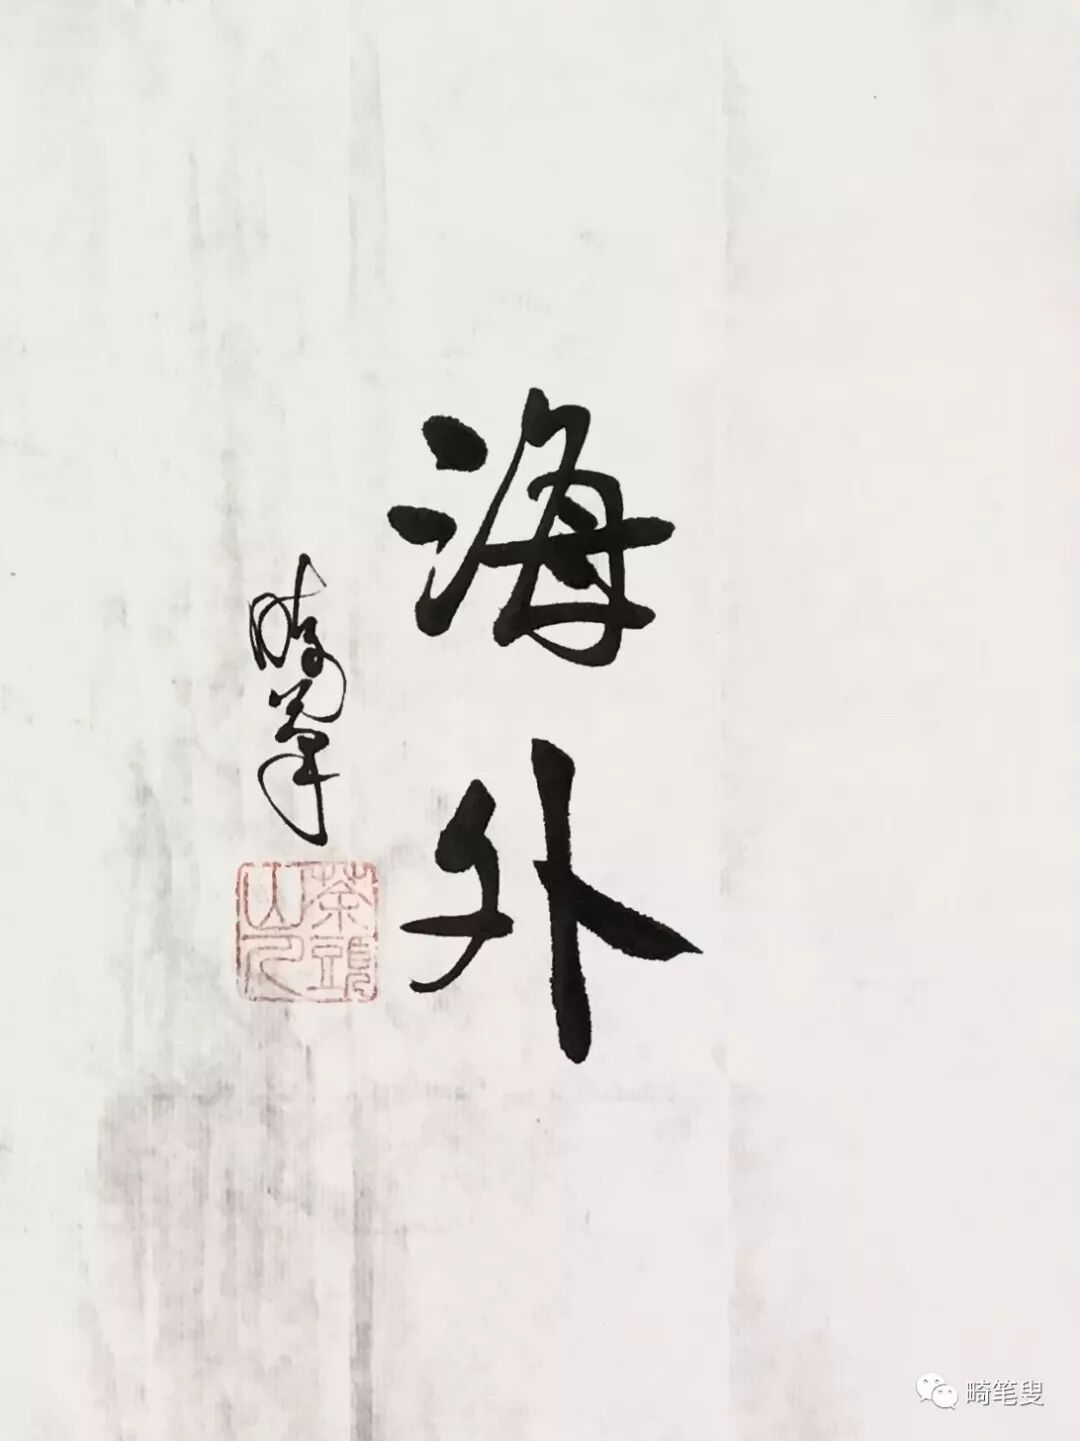 海外
畸笔
畸笔叟